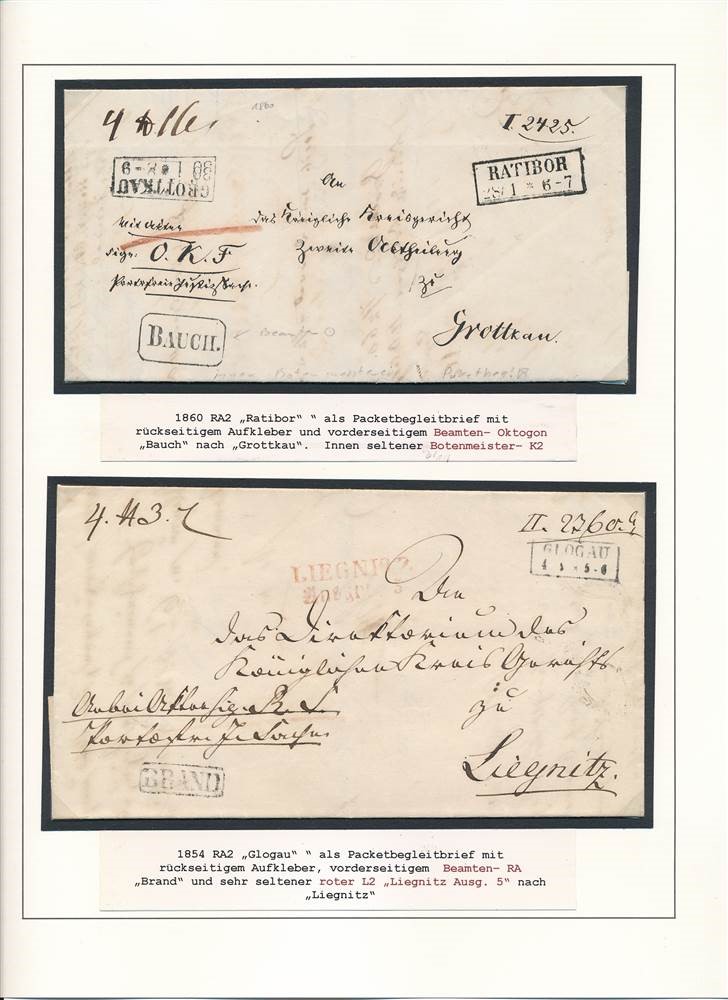 1860
4 ₰ llc
I. 2425.
RATIBOR
28/1 * 6-7
GROTTKAU
30 1 * 8-9
An
das Königliche Kreisgericht
Zweite Abtheilung
zu
Grottkau.
Mit Akten
sign: O. K. F.
Portofreie Justiz Sache.
BAUCH.
Beamten
1860 RA2 „Ratibor“ “ als Packetbegleitbrief mit
rückseitigem Aufkleber und vorderseitigem Beamten- Oktogon
„Bauch“ nach „Grottkau“. Innen seltener Botenmeister- K2
4. ℔ 3.
II. 2360
GLOGAU
4 * 5-6
LIEGNITZ
An
das Direktorium des
Königlichen Kreis Gerichts
zu
Liegnitz.
Anbei Akten sig. K. G.
Portofr. J. Sache
BRAND
1854 RA2 „Glogau“ “ als Packetbegleitbrief mit
rückseitigem Aufkleber, vorderseitigem Beamten- RA
„Brand“ und sehr seltener roter L2 „Liegnitz Ausg. 5“ nach
„Liegnitz“